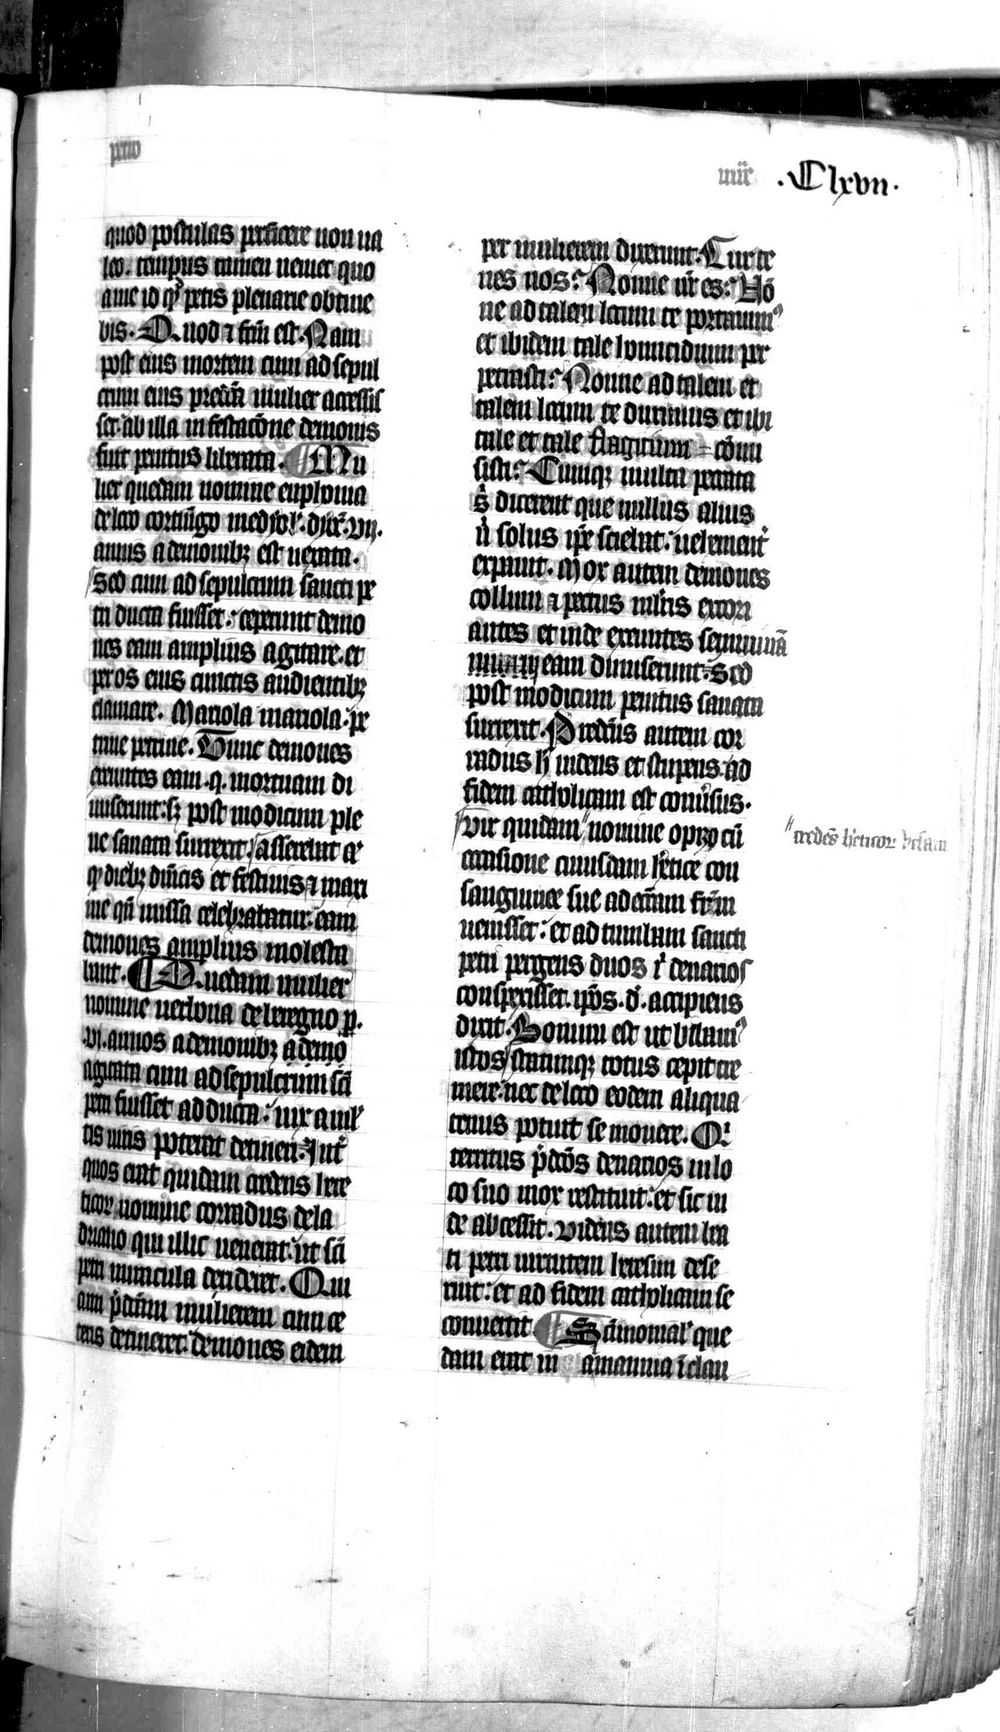 .Clxvii.
quod postulas perficere non ua
leo. tempus tamen ueniet quo
a me id qđ petis plenarie obtine
bis. Quod ⁊ fcm̄ est. Nam
post eius mortem cum ad sepul
crum eius predca mulier accessis
set. ab illa infestacōne demonis
fuit penitus liberata. ¶ Mu
lier quedam nomine euphemia
de loco mediol'. dyoc̄. vii.
annis a demonibꝫ est uexata.
Sed cum ad sepulcrum sancti pe
tri ducta fuisset. ceperunt demo
nes eam amplius agitare. et
per os eius cunctis audientibꝫ
clamare. Mariola mariola. pe
trine petrine. Tunc demones
exeuntes eam .q. mortuam di
miserunt. sꝫ post modicum ple
ne sanata surrexit. asserebat a
qđ diebꝫ dn̄icis et festiuis ⁊ maxi
me qn̄ missa celebrabatur. eam
demones amplius molesta
bant. ¶ Quedam mulier
nomine uerbona de beregno p.
.vi. annos a demonibꝫ
agitata cum ad sepulcrum sci
petri fuisset adducta. uix a mul
tis uiris poterat detineri. Int̄
quos erat quidam credens here
ticoꝝ nomine conradus de la
driano qui illic uenerat. ut sci
petri miracula derideret. Qui
cum p̄dcam mulierem cum ce
teris detineret. demones eidem
per mulierem dixerunt. Cur te
nes nos? Nonne nr̄ es? Nō
ne ad talem locum te portauim⁹
et ibidem tale homicidium per
petrasti? Nonne ad talem et
talem locum te duximus et ibi
tale et tale flagitium cōmi
sisti? Cumqꝫ multa peccata
s̄ dicerent que nullus alius
n̄ solus ip̄e sciebat. uehement̄
expauit. Mox autem demones
collum ⁊ pectus mulieris excori
antes et inde exeuntes semiuiuā
eam dimiserunt. Sed
post modicum penitus sanata
surrexit. Predcūs autem cor
radus h̄ uidens et stupens. ad
fidem catholicam est conuersus.
Vir quidam nomine opizo cū
credēs hereticoꝝ
occasione cuiusdam heretice con
sanguinee sue ad ecciam frm̄
uenisset. et ad tumulum sancti
petri pergens duos ī denarios
conspexisset. ip̄os .d. accipiens
dixit. Bonum est ut bibam⁹
istos statimqꝫ totus cepit tre
mere. nec de loco eodem aliqua
tenus potuit se mouere. Qi
territus p̄dcōs denarios in lo
co suo mox restituit. et sic in
de abcessit. Videns autem bea
ti petri uirtutem heresim dese
ruit. et ad fidem catholicam se
conuertit. ¶ Sāimonial' que
dam erat in alamannia ī clau